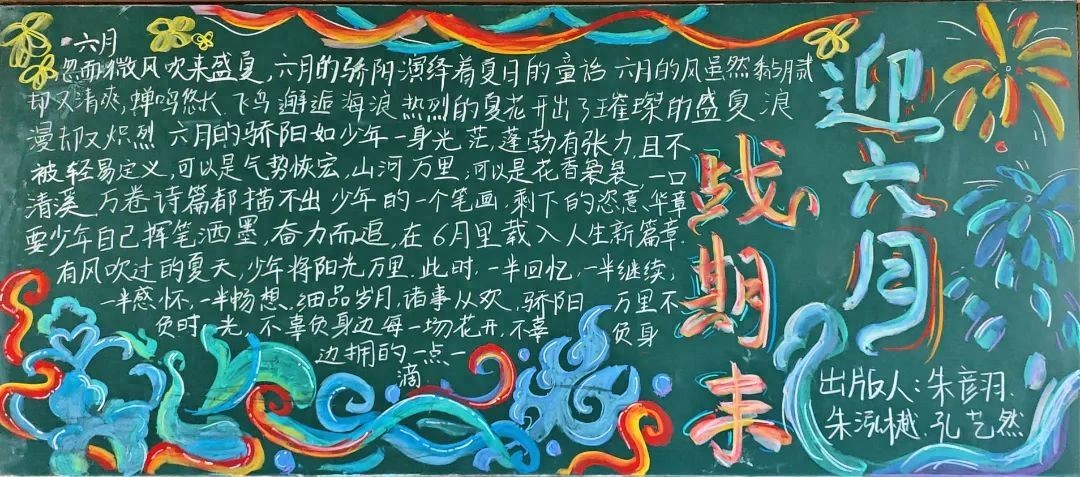 六月
忽而微风吹来盛夏,六月的骄阳演绎着夏日的童话 六月的风虽然黏腻
却又清爽,蝉鸣悠长 飞鸟邂逅海浪 热烈的夏花开出了璀璨的盛夏 浪
漫却又炽烈 六月的骄阳如少年一身光茫,蓬勃有张力,且不
被轻易定义,可以是气势恢宏,山河万里,可以是花香袅袅 一口
清溪 万卷诗篇都描不出少年的一个笔画.剩下的恣意华章
要少年自己挥笔洒墨,奋力而追,在6月里载入人生新篇章.
有风吹过的夏天,少年将阳光万里.此时,一半回忆,一半继续,
一半感怀,一半畅想.细品岁月,诸事从欢.骄阳 万里不
负时光,不辜负身边每一场花开,不辜 负身
边拥的一点一
滴
战期末
迎六月
出版人:朱彦羽.
朱泓樾.孔艺然